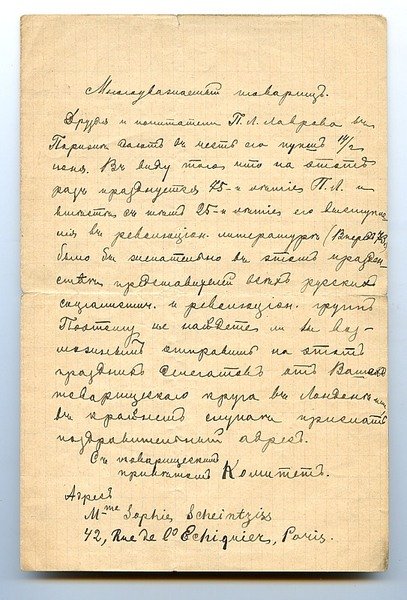 Многоуважаемый товарищъ.
Друзья и почитатели П. Л. Лаврова въ
Парижѣ даютъ въ честь его пуншъ 14/2
іюня. Въ виду того что на этотъ
разъ празднуется 75-и лѣтіе П. Л. и
вмѣстѣ съ тѣмъ 25-и лѣтіе его выступле
нія въ революціон. литературѣ (Впередъ
было бы желательно въ этомъ празд
представителей всѣхъ русскихъ
соціалистич. и революціон. группъ
Поэтому не найдете ли вы воз-
можнымъ отправить на этотъ
праздникъ делегатовъ отъ Вашего
товарищескаго круга въ Лондонѣ или
въ крайнемъ случаѣ прислать
поздравительный адресъ.
Съ товарищескимъ
привѣтомъ Комитетъ.
Адресъ
Mme Sophie Scheintziss
42, Rue de l'Echiquier, Paris.